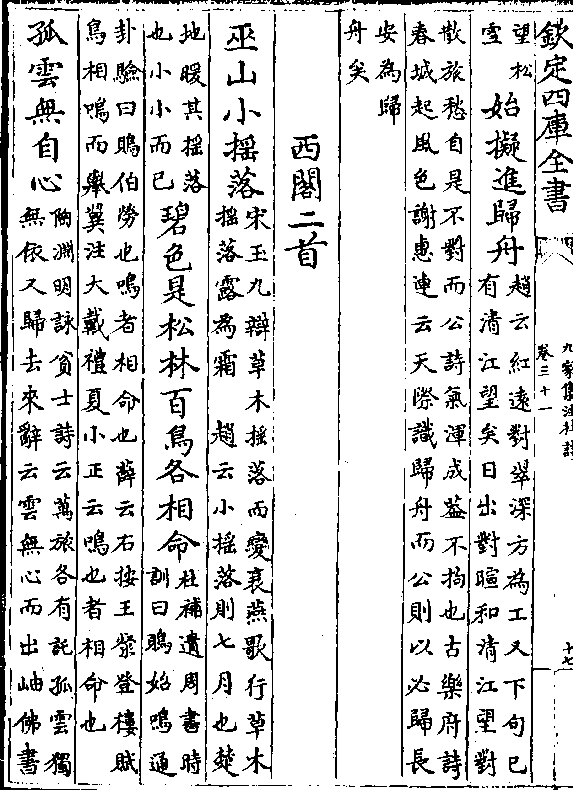 欽定四庫全書
九家集注杜詩
卷三十一
十七
望松
雪
始擬進歸舟
趙云紅遠對翠深方為工又下句已
有清江望矣日出對暄和清江望對
散旅愁自是不對而公詩氣渾成蓋不拘也古樂府詩
春城起風色謝惠連云天際識歸舟而公則以必歸長
安為歸
舟矣
西閣二首
巫山小搖落
宋玉九辯草木搖落而變衰燕歌行草木
搖落露為霜　趙云小搖落則七月也楚
地暖其搖落
也小小而已
碧色是松林百鳥各相命
杜補遺周書時
訓曰鵙始鳴通
卦驗曰鵙伯勞也鳴者相命也薛云右按王粲登樓賦
鳥相鳴而舉翼注大戴禮夏小正云鳴也者相命也
孤雲無自心
陶淵明詠貧士詩云萬旅各有託孤雲獨
無依又歸去來辭云雲無心而出岫佛書